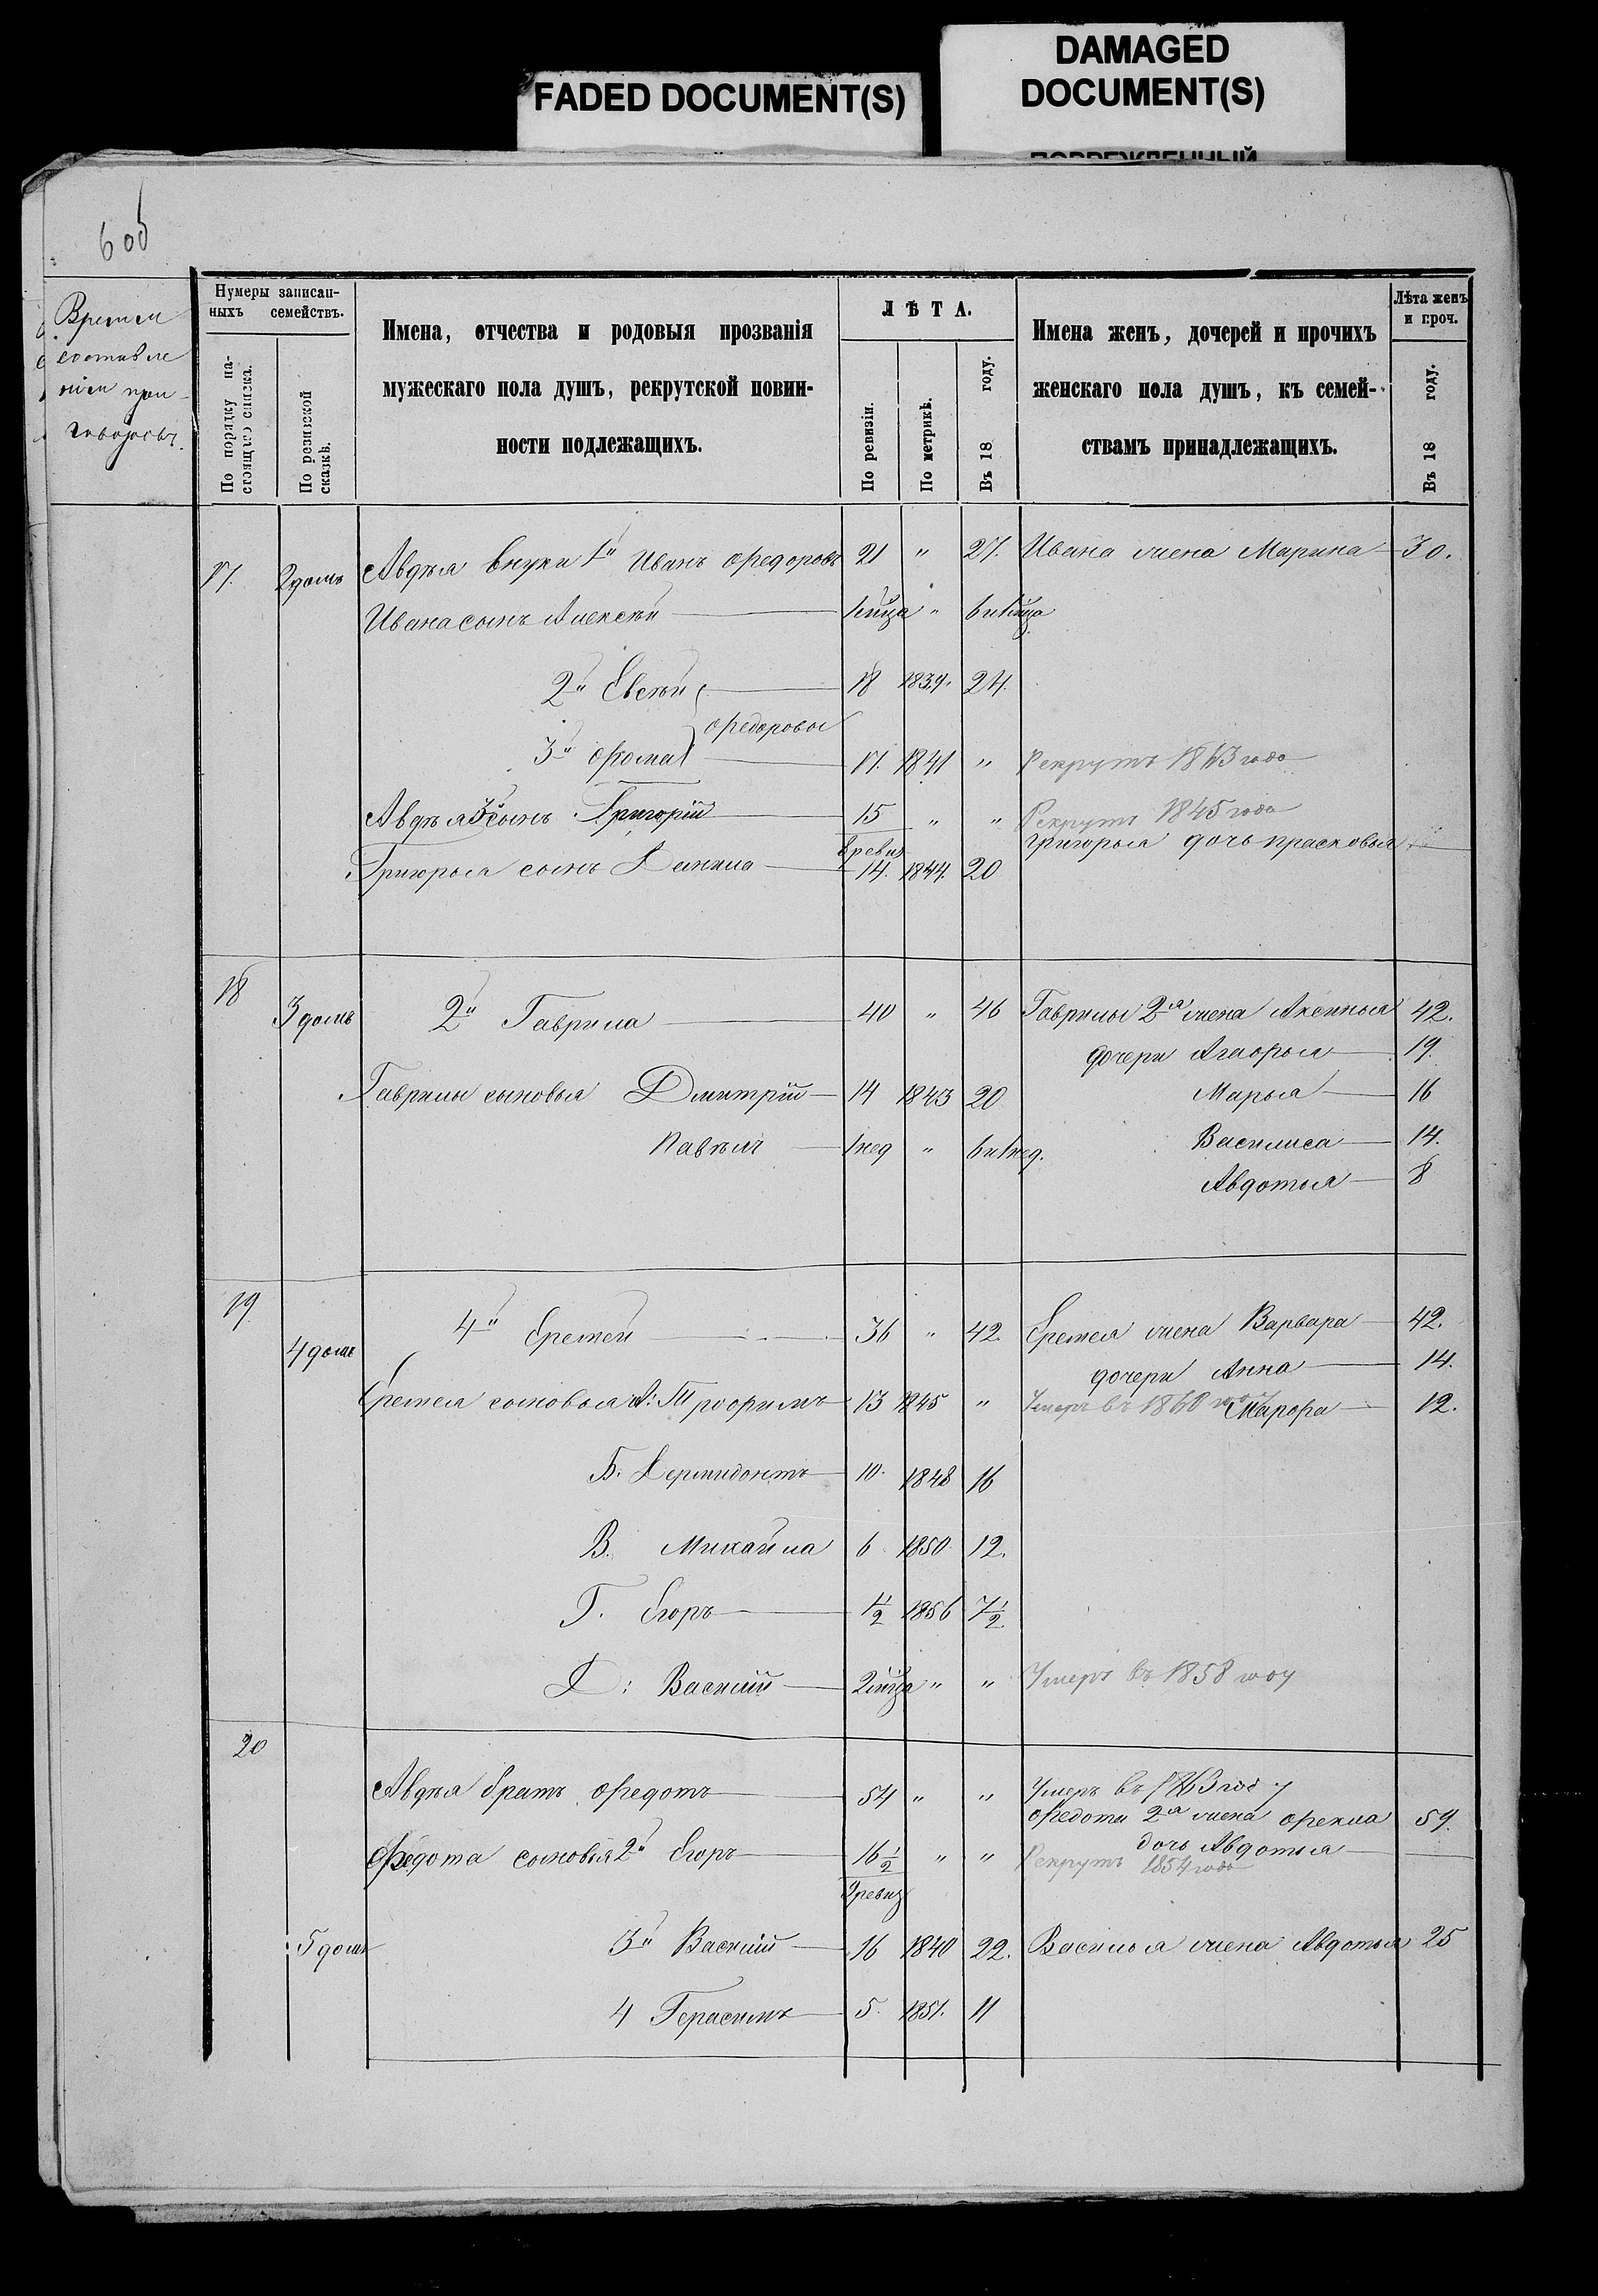 FADED DOCUMENT(S)
DAMAGED
DOCUMENT(S)
6 об
Время
составле
нія при
говоровъ.
Нумеры записан-
ныхъ семействъ.
По порядку на-
стоящаго списка.
По ревизской
сказкѣ.
Имена, отчества и родовыя прозванія
мужескаго пола душъ, рекрутской повин-
ности подлежащихъ.
ЛѢТА.
По ревизіи.
По метрикѣ.
Въ 18 году.
Имена женъ, дочерей и прочихъ
женскаго пола душъ, къ семей-
ствамъ принадлежащихъ.
Лѣта женъ
и проч.
Въ 18 году.
17. 2 домъ Авдѣя внуки 1й Иванъ Ѳедоровъ 21 " 27. Ивана жена Марина 30.
Ивана сынъ Алексѣй "
2й Евсѣй 18 1839. 24.
Ѳедоровы
3й Ѳома 17. 1841 " Рекрутъ 1863 года
Авдѣя 3й сынъ Григорій 15 " " Рекрутъ 1845 года
9 ревиз Григорья дочь Прасковья
Григорья сынъ Данила 14. 1844. 20
18 3 домъ 2й Гаврила 40 " 46 Гаврилы 2я жена Аксинья 42.
дочери Агафья 19.
Гаврилы сыновья Дмитрій 14 1843 20 Марья 16
Павелъ 1 нед " 6 и 1 нед. Василиса 14.
Авдотья 8
19. 4 домъ 4й Еремей 36 " 42. Еремея жена Варвара 42.
дочери Анна 14.
Еремея сыновья А: Трофимъ 13 1845 " Умеръ въ 1860 году Марфа 12.
Б. Дермидонтъ 10. 1848 16
В. Михайла 6 1850 12.
Г. Егоръ 1/2 1856 7 1/2
Д: Василій " " Умеръ въ 1858 году
20
Авдѣя братъ Ѳедотъ 54 " " Умеръ въ 1863 году
Ѳедота 2я жена Ѳекла 59.
дочь Авдотья
Ѳедота сыновья 2й Егоръ 16 1/2 " " Рекрутъ 1854 года
9 ревиз
5 домъ 3й Василій 16 1840 22. Василья жена Авдотья 25
4 Герасимъ 5. 1851. 11